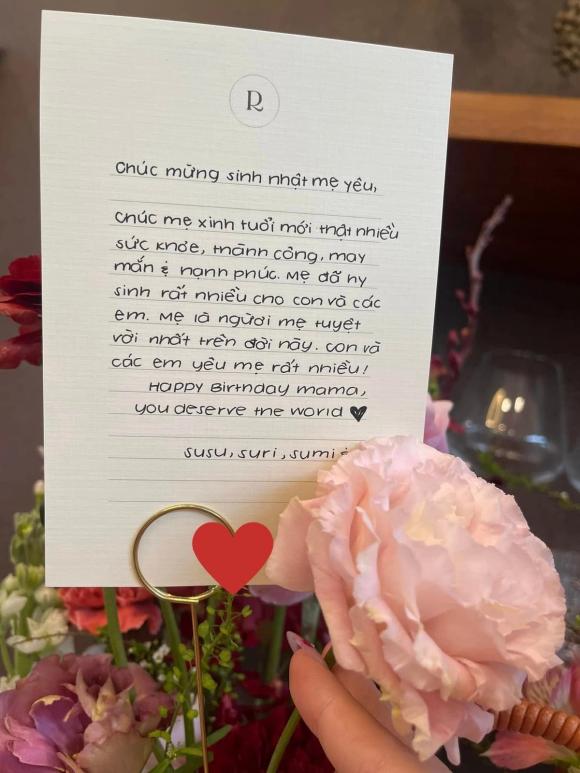 R
Chúc mừng sinh nhật mẹ yêu,
Chúc mẹ xinh tuổi mới thật nhiều
sức khỏe, thành công, may
mắn & hạnh phúc. Mẹ đã hy
sinh rất nhiều cho con và các
em. Mẹ là người mẹ tuyệt
vời nhất trên đời này. Con và
các em yêu mẹ rất nhiều!
Happy Birthday mama,
you deserve the world ♥
susu, suri, sumi &